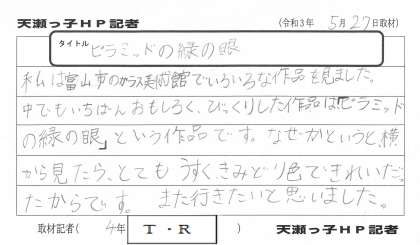 天瀬っ子HP記者 (令和3年 5月27日取材)
タイトル ピラミッドの緑の眼
私は富山市のガラス美術館でいろいろな作品を見ました。
中でもいちばんおもしろく、びっくりした作品は「ピラミッド
の緑の眼」という作品です。なぜかというと、横
から見たら、とてもうすくきみどり色できれいだっ
たからです。また行きたいと思いました。
取材記者( 4年 T・R ) 天瀬っ子HP記者